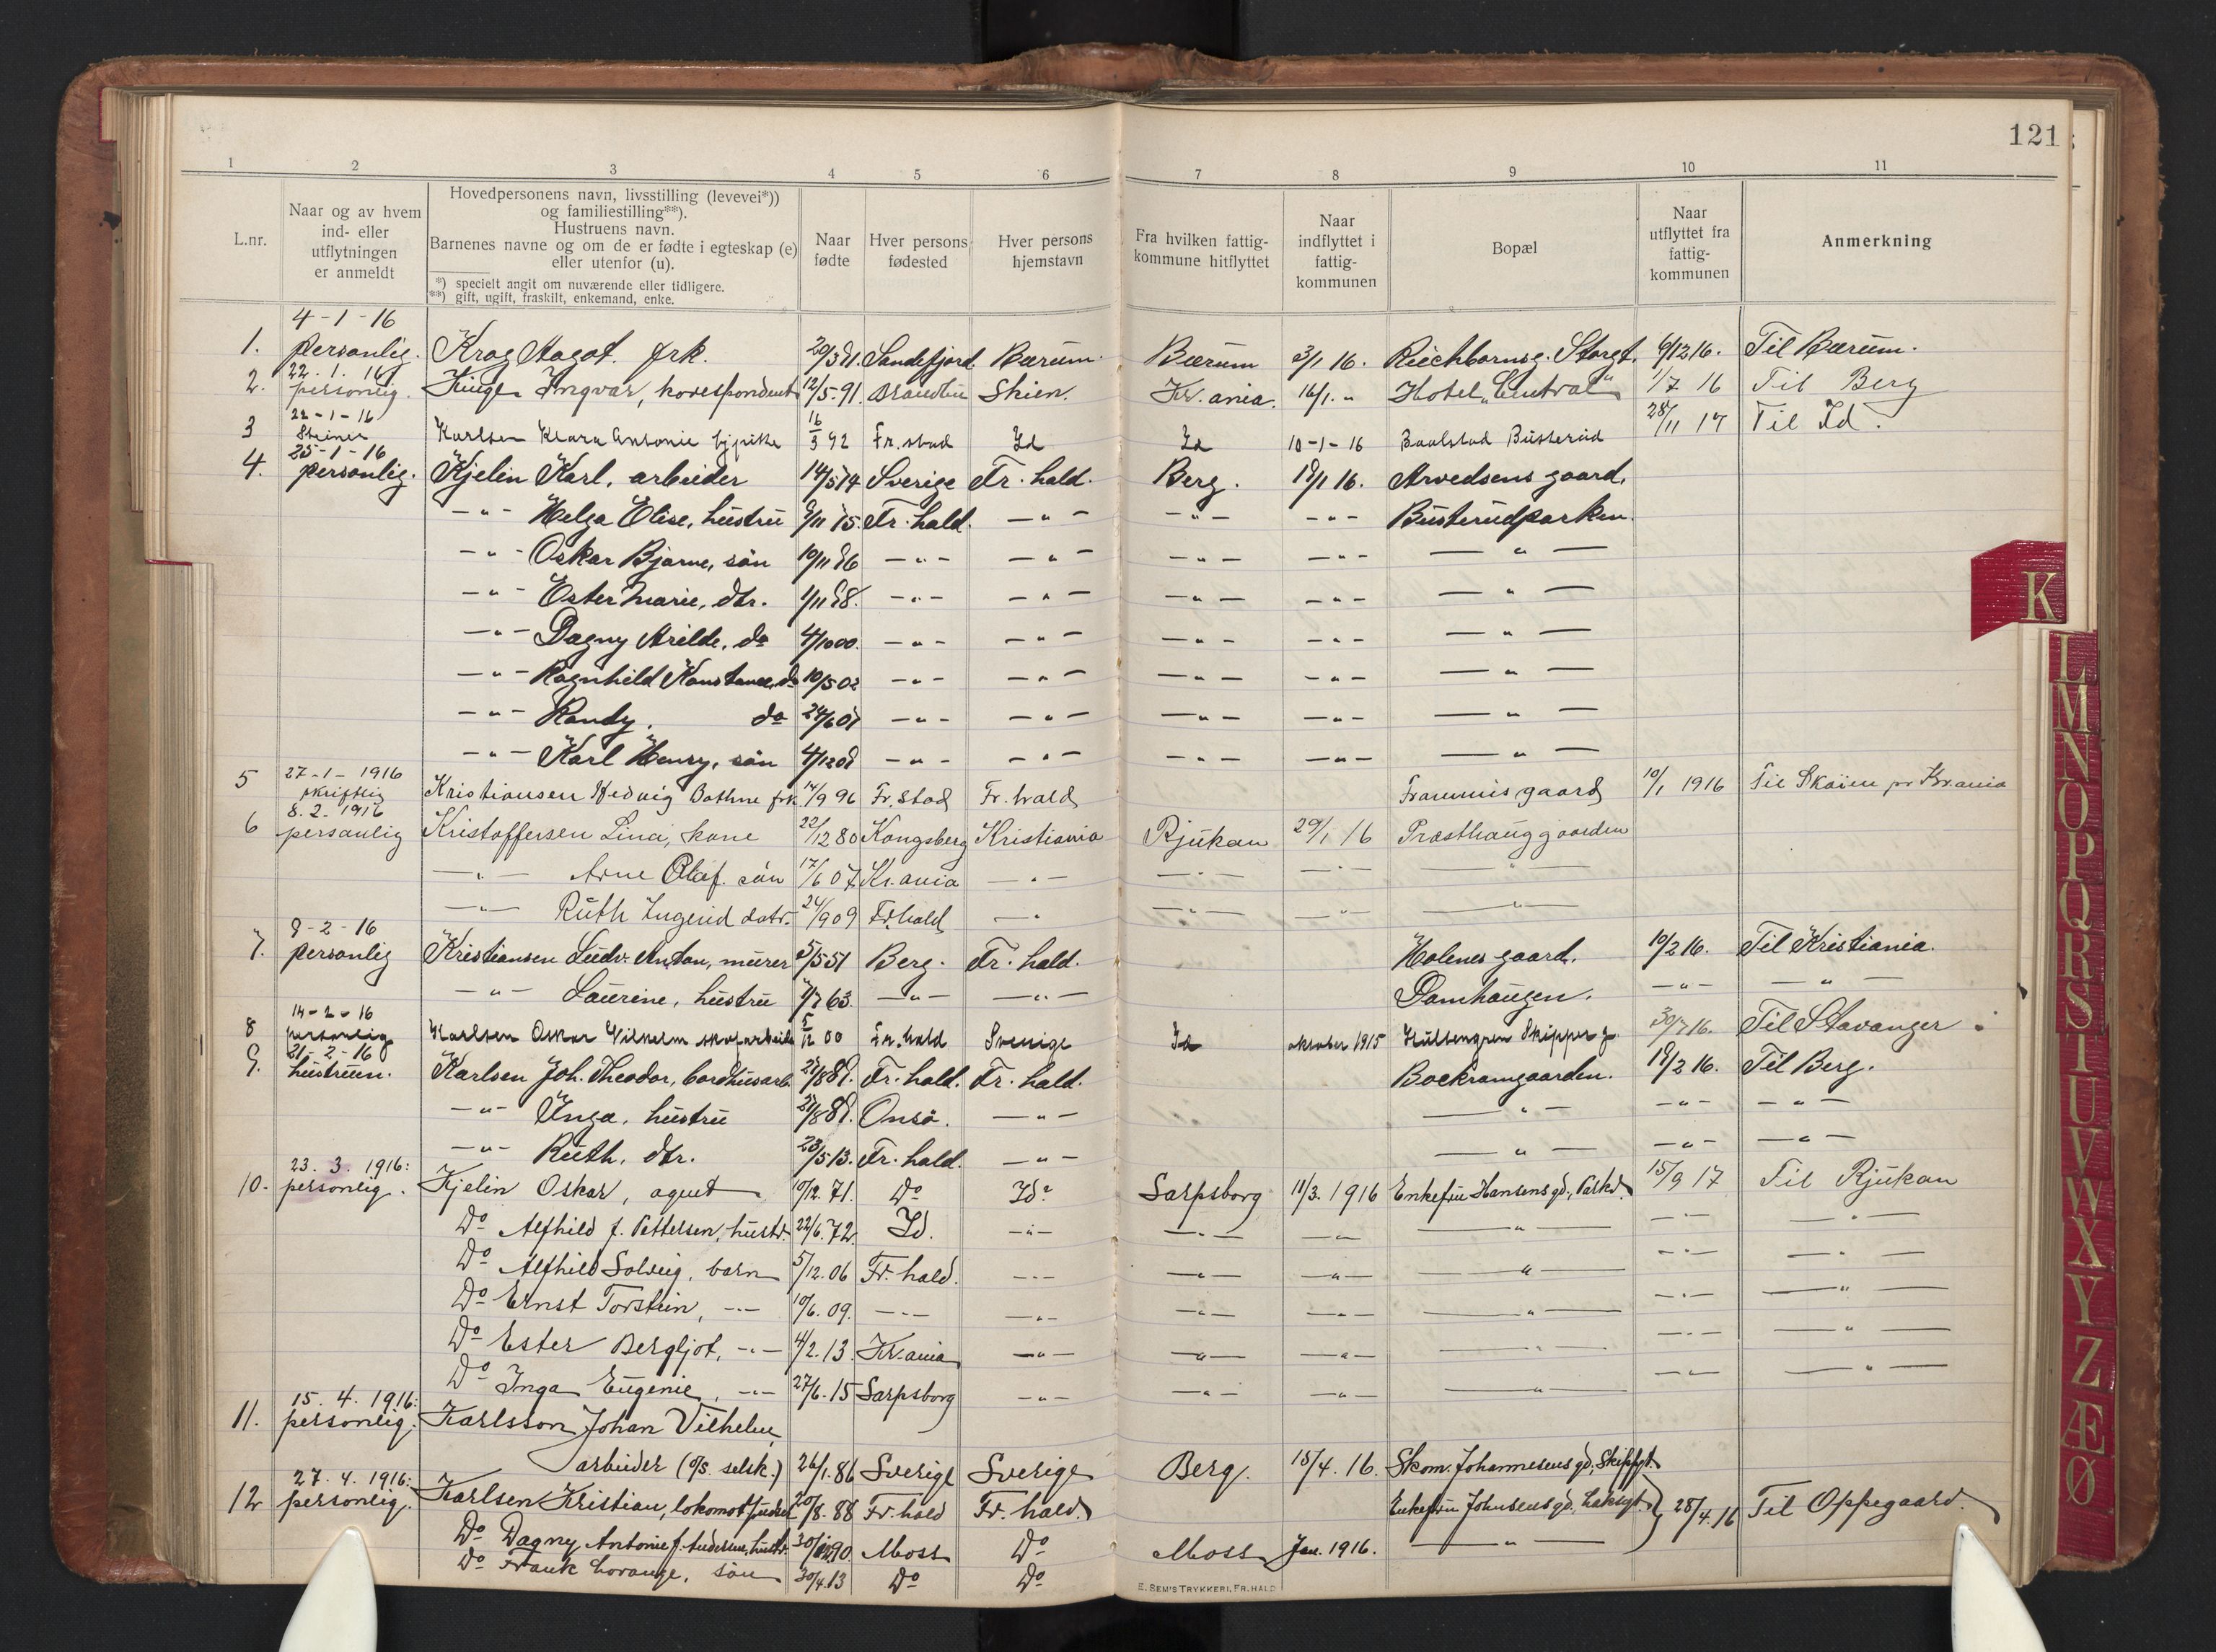 121
1 2 3 4 5 6 7 8 9 10 11
L.nr.
Naar og av hvem
ind- eller
utflytningen
er anmeldt
Hovedpersonens navn, livsstilling (levevei*))
og familiestilling**).
Hustruens navn.
Barnenes navne og om de er fødte i egteskap (e)
eller utenfor (u).
*) specielt angit om nuværende eller tidligere.
**) gift, ugift, fraskilt, enkemand, enke.
Naar
fødte
Hver persons
fødested
Hver persons
hjemstavn
Fra hvilken fattig-
kommune hitflyttet
Naar
indflyttet i
fattig-
kommunen
Bopæl
Naar
utflyttet fra
fattig-
kommunen
Anmerkning
4-1-16
1. personlig. Krog Aagot. frk. Sandefjord Bærum. Bærum 3/1 16. Storgt. 6/12 16. Til Bærum.
22.1.16
2. personlig. Ingvar, korrespondent 12/5-91. Brandbu Skien. Kr.ania. 16/1 " Hotel "Central" 1/7 16 Til Berg
22-1-16
3 Karlsen Klara Antonie 16/3 92 Fr.stad Id Id 10-1-16 Busterud 28/11 17 Til Id.
25-1-16
4. personlig. Kjelin Karl, arbeider 14/5 74 Sverige Fr. hald. Berg. 18/1 16. Arvedsens gaard,
-"- Helga Elise, hustru Fr. hald. -"- -"- -"- Busterudparken.
-"- Oskar Bjarne, søn -"- -"- -"- -"- -"-
-"- Ester Marie, dtr. -"- -"- -"- -"- -"-
-"- Dagny Arilde, do 4/10 00. -"- -"- -"- -"- -"-
-"- Ragnhild Konstance, do 10/5 02 -"- -"- -"- -"- -"-
-"- Randy. do -"- -"- -"- -"- -"-
-"- Karl Henry, søn 4/12 08 -"- -"- -"- -"- -"-
27-1-1916
5 skriftlig Kristiansen Hedvig Bathne frk. 14/9 96 Fr.stad Fr.hald gaard 10/1 1916 Til Skøien pr Kr.ania
8.2.1916
6 personlig Kristoffersen Lina, kone 22/12 80 Kongsberg Kristiania Rjukan 29/1 16 Præsthauggaarden
-"- Arne Olaf. søn 17/6 07 Kr.ania -"- -"- -"- -"-
-"- Ruth Ingerid datr. 24/9 09 Fr.hald -"- -"- -"- -"-
8-2-16
7. personlig Kristiansen Ludv. Anton, murer 5/5 51 Berg. Fr. hald. Holenes gaard. 10/2 16. Til Kristiania.
-"- Laurine, hustru 7/7 63. -"- -"- Damhaugen. -"- -"-
14-2-16
8 personlig Karlsen Oskar Vilhelm skofarbeider 5/12 00 Fr.hald Sverige Id oktober 1915 Hultengren Skipperg. 30/7 16. Til Stavanger.
21-2-16
9. hustruen. Karlsen Joh. Theodor, Fr. hald. Fr. hald. Bockramgaarden. 18/2 16. Til Berg.
-"- Inga, hustru Onsø. -"- -"- -"- -"-
-"- Ruth, dtr. 23/5 13. Fr. hald. -"- -"- -"- -"-
23.3.1916:
10. personlig. Kjelin Oskar, agent 10/12. 71. Do Id. Sarpsborg 11/3. 1916 Enkefru Hansens gd., Parkv. 15/9 17 Til Rjukan
Do Alfhild f. Pettersen, hustr. 22/6.72. Id. -"- -"- -"- -"- -"- -"-
Do Alfhild Solveig, barn 5/12.06 Fr. hald. -"- -"- -"- -"- -"- -"-
Do Ernst Torstein, -"- 10/6. 09. -"- -"- -"- -"- -"- -"- -"-
Do Ester Bergljot, -"- 4/2.13. Kr.ania -"- -"- -"- -"- -"- -"-
Do Inga Eugenie, -"- 27/6.15 Sarpsborg -"- -"- -"- -"- -"- -"-
15.4.1916:
11. personlig. Karlsson Johan Vilhelm,
arbeider (o/s. selsk.) 26/1.86 Sverige Sverige Berg. 15/4. 16. Skom. Johannesens gd., Skippgt.
27.4.1916:
12 personlig. Karlsen Kristian, 20/8.88 Fr.hald Fr. hald. Enkefru Johnsens gd. 28/4 16 Til Oppegaard.
Do Dagny Antonie f. Andersen, hustr. Moss Do Moss Jan. 1916. -"-
Do Frank Lorange, søn 30/4.13 Do Do
E. SEM'S TRYKKERI, FR.HALD
K
L
M
N
O
P
Q
R
S
T
U
V
W
X
Y
Z
Æ
Ø